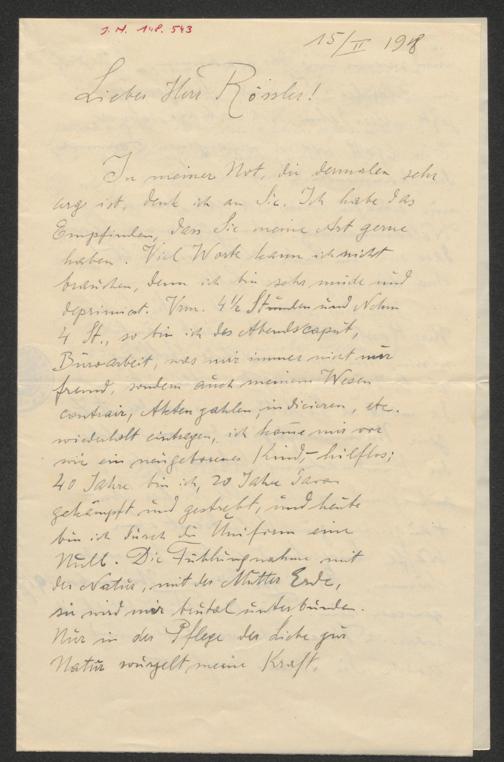 J. N. 148.543
15/II 1918
Lieber Herr Rössler!
In meiner Not, die dermalen sehr
arg ist, denk ich an Sie. Ich habe das
Empfinden, dass Sie meine Art gerne
haben. Viel Worte kann ich nicht
brauchen, denn ich bin sehr müde und
deprimiert. Vrm. 4½ Stunden und Nchm
4 St., so bin ich des Abends caput,
Büroarbeit, was mir immer nicht nur
fremd, sondern auch meinem Wesen
contrair, Akten zahlen, indicieren, etc.
wiederholt eintragen, ich kome mir vor
wie ein neugeborenes Kind,- hilflos;
40 Jahre bin ich, 20 Jahre davon
gekämpft und gestrebt, und heute
bin ich durch die Uniform eine
Null. Die Fühlungnahme mit
der Natur, mit der Mutter Erde,
sie wird mir brutal unterbunden.
Nur in der Pflege der Liebe zur
Natur wurzelt meine Kraft.